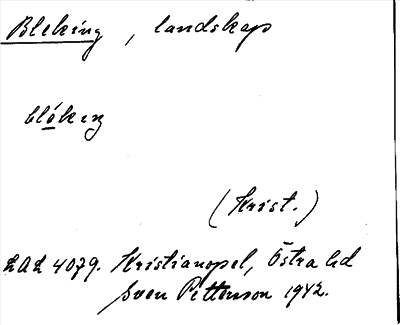 Bleking, landskap
blékıŋ
(Krist.)
LAL 4079. Kristianopel, Östra hd
Sven Pettersson 1942.